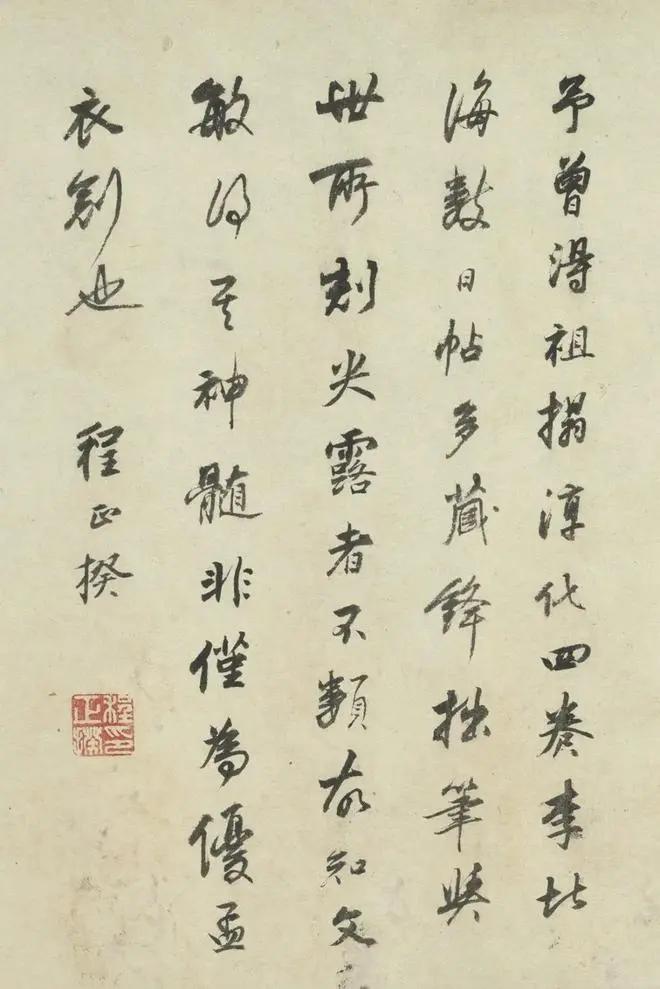 予曾得祖搨淳化四卷李北
海數日帖多藏鋒拙筆與
世所刻尖露者不類故知文
敏得其神髓非僅為優孟
衣劍也 程正揆
程正揆印